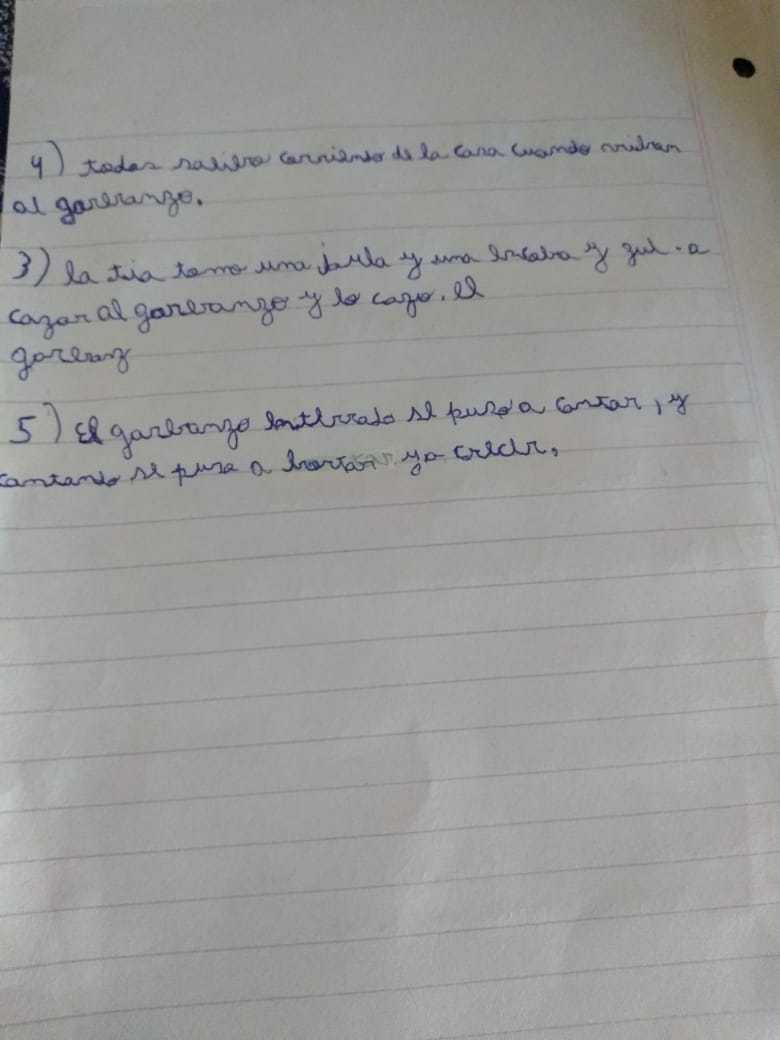 4) todas saliero corriendo de la casa cuando vieron
al garbanzo.
3) la tia tomo una jaula y una escoba y fue a
cazar al garbanzo y lo cazo. el
garbanz
5) El garbanzo enterrado se puso a cantar, y
cantando se puso a brotar y a crecer.